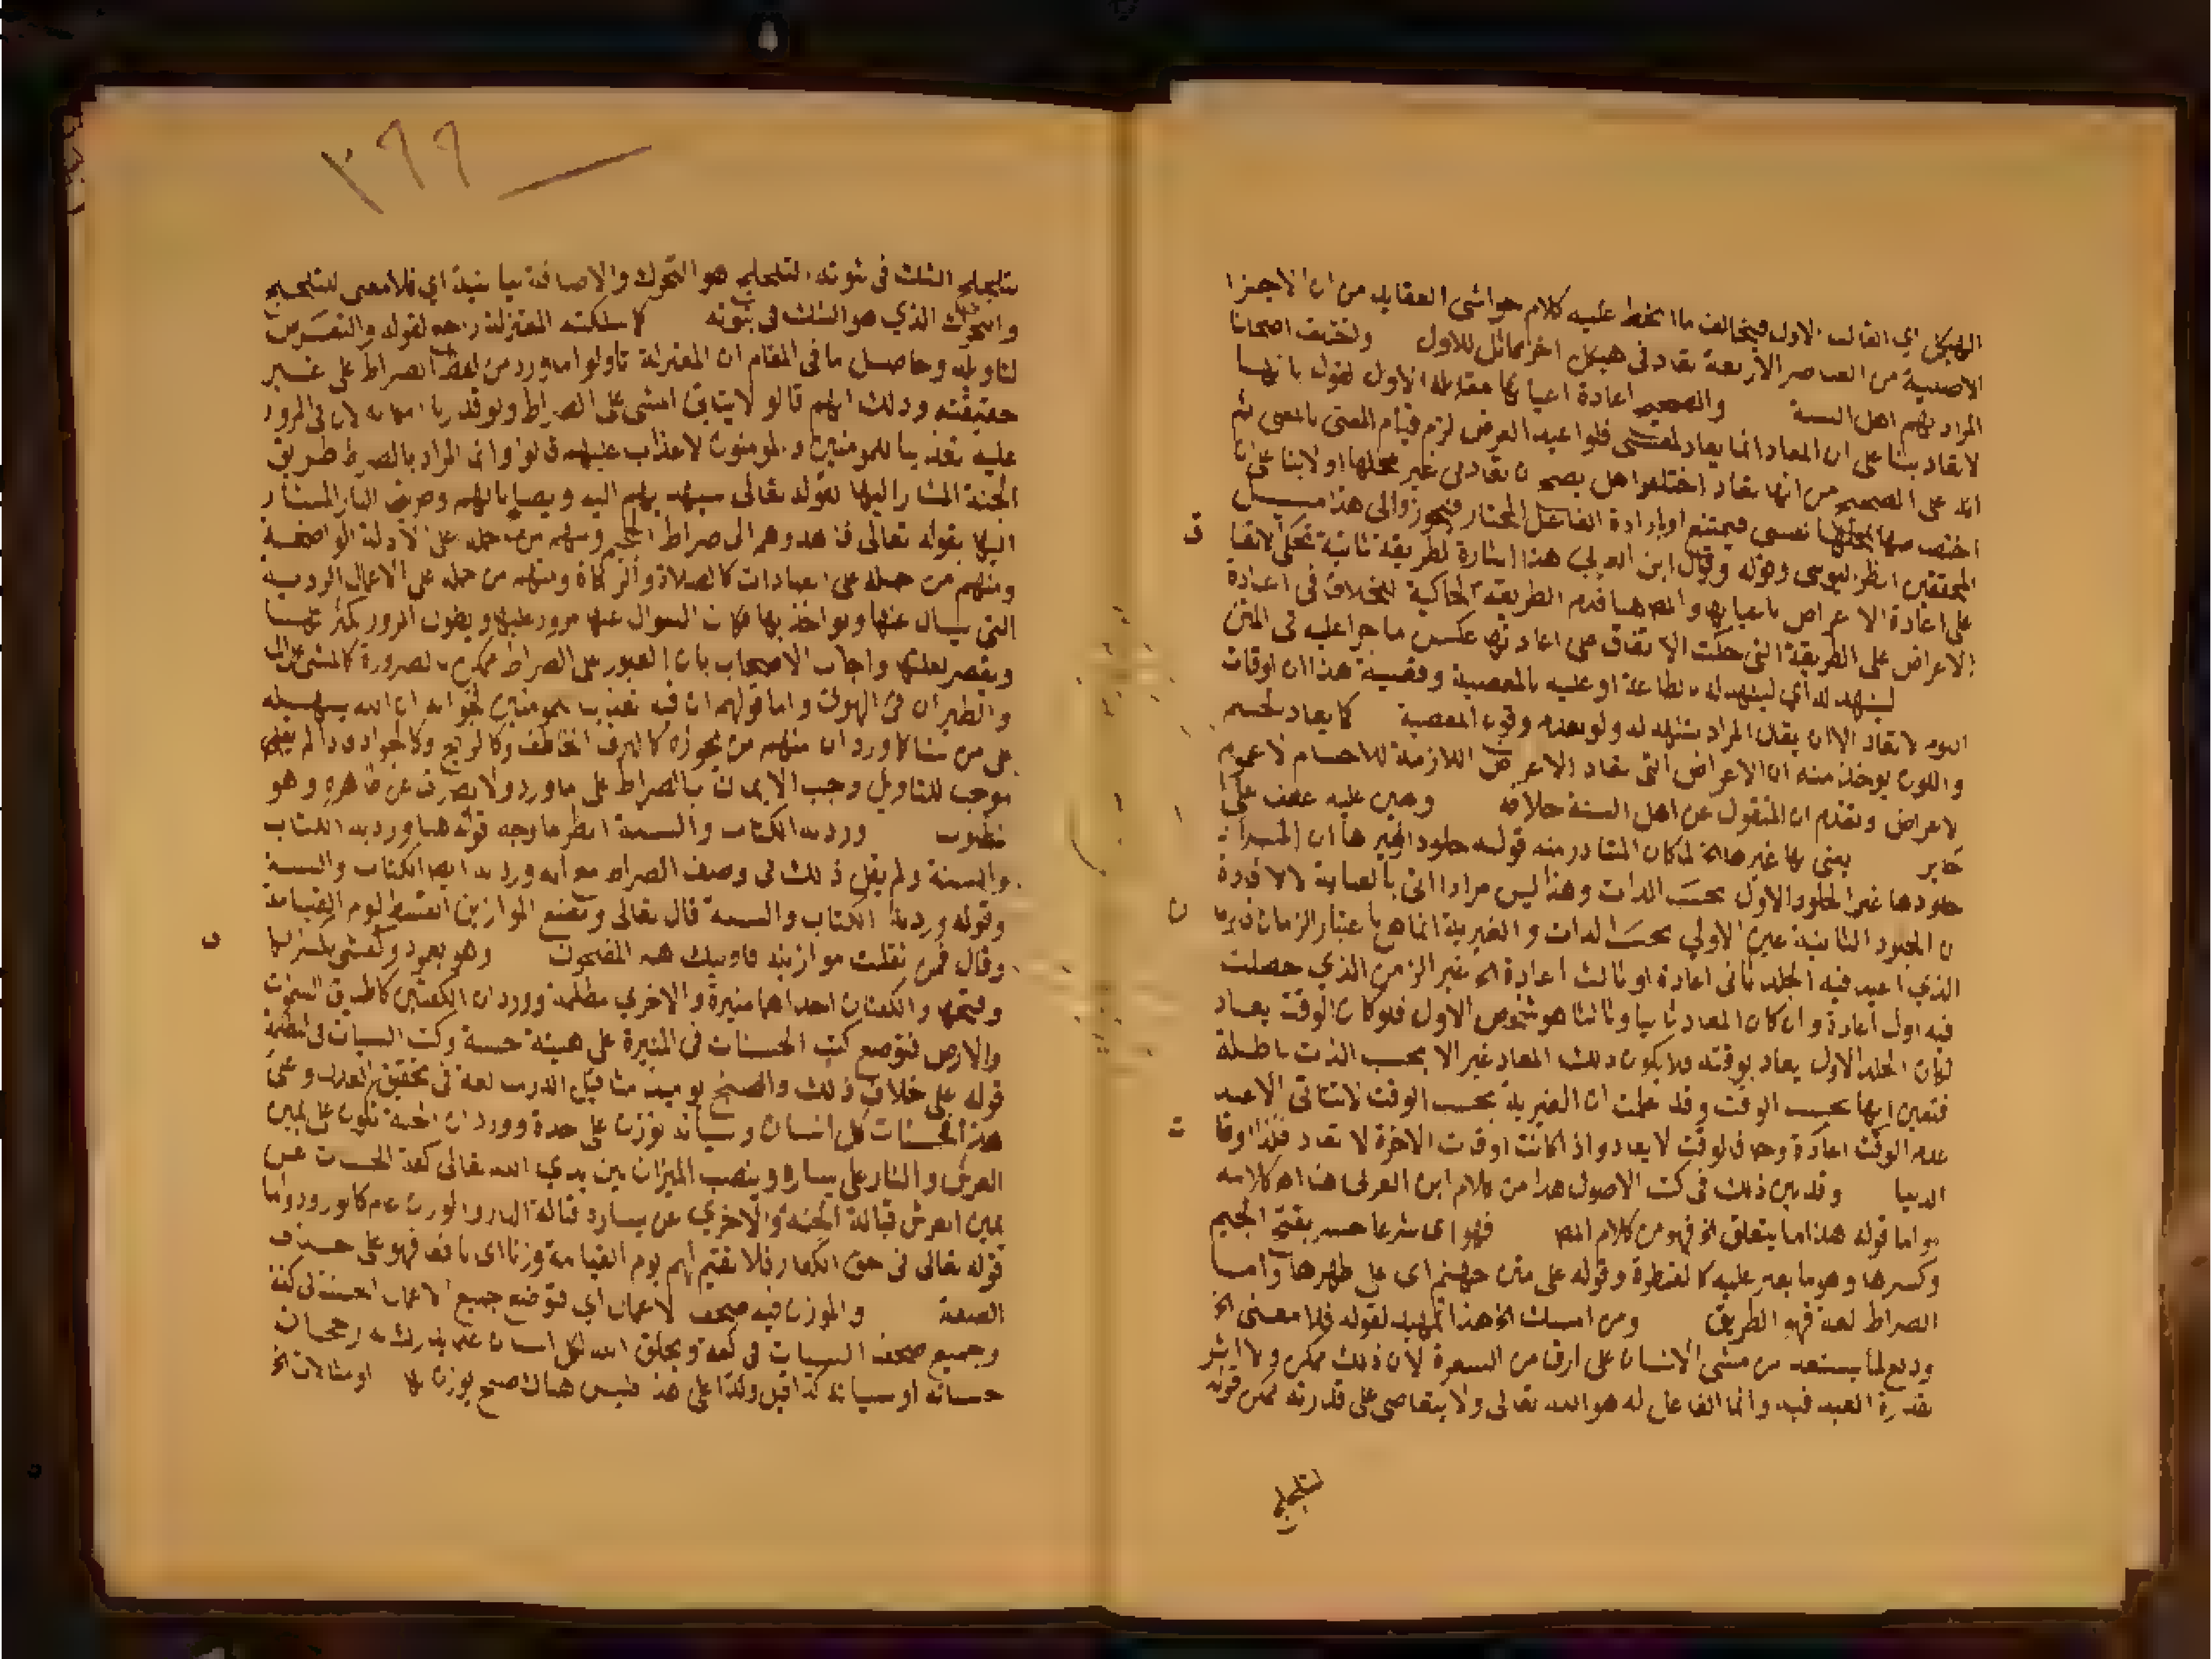 الهيكل اي القالب الاول فيخالف ما انحط عليه كلام حواشي العقايد من ان الاجزا
الاصلية من العناصر الاربعة تعاد في هيكل اخر مماثل للاول واختلف اصحابنا
المراد بهم اهل السنة والصحيح اعادة اعيانها مقابله الاول لقوله بانها
لا تعاد بنا على ان المعاد انما يعاد لمعنى فلو اعيد العرض لزم قيام المعنى بالمعنى ثم
انه على الصحيح من انها تعاد اختلفوا هل يصح ان تعاد في غير محلها اولا بنا على ان
اختصاصها بمحلها نفسي فيمتنع او بارادة الفاعل المختار فيجوز والى هذا ميل
المحققين انظر اليوسي وقوله وقال ابن العربي هذا اشارة لطريقة ثانية تحكي الاتفا ق
على اعادة الاعراض باعيانها والمص هنا قدم الطريقة الحاكية للخلاف في اعادة
الاعراض على الطريقة التي حكت الاتفاق على اعادتها عكس ما جرا عليه في المتن
ليشهد له اي ليشهد له بالطاعة او عليه بالمعصية وقضية هذا ان اوقات
لا تعاد الا ان يقال المراد تشهد له ولو بعدم وقوع المعصية كما يعاد الجسم
واللون يوخذ منه ان الاعراض التي تعاد الاعراض اللازمة للاجسام لا عموم
الاعراض وتقدم ان المنقول عن اهل السنة خلافه وهين عليه عطف على
يعني بها غيرها الخ لما كان المتبادر منه قوله جلودا غيرها ان المراد
جلودها غير الجلود الاول بحسب الذات وهذا ليس مرادا اتى بالعناية لافادة
ان الجلود الثانية عين الاولي بحسب الذات والغيرية انما هي باعتبار الزمان فزما ن
الذي اعيد فيه الجلد ثاني اعادة او ثالث اعادة الخ غير الزمن الذي حصلت
فيه اول اعادة وان كان المعاد ثانيا وثالثا هو شخص الاول فلو كان الوقت يعاد
لكان الجلد الاول يعاد بوقته فلا يكون ذلك المعاد غير الا بحسب الذات باطلة
فتعين انها بحسب الوقت وقد علمت ان الغيرية بحسب الوقت لا تتاتى الا عند
عدم الوقت اعادة وحا فالوقت لا يعاد واذا كانت اوقات الاخرة لا تعاد فكذا اوقا ت
الدنيا وقد بين ذلك في كتب الاصول هذا من كلام ابن العربي هذا اه كلامه
واما قوله هذا ما يتعلق الخ فهو من كلام المص فهو اي شرعا جسر بفتح الجيم
وكسرها وهو ما يعبر عليه كالقنطرة وقوله على متن جهنم اي على ظهرها واما
الصراط لغة فهو الطريق ومن امسك الخ هذا تمهيد لقوله فلا معنى الخ
ودفع لما يستبعد من مشى الانسان على ارق من الشعرة لان ذلك ممكن ولا اثر
لقدرة العبد فيه وانما الفاعل له هو الله تعالى ولا يتعاصى على قدرته ممكن قوله
لتلجلج
٣٩٩
لتلجلج الشك في ثبوته التلجلج هو التحرك والاضافة بيانية اي فلا معنى للتلجلج
والتحرك الذي هو الشك في ثبوته كما سلكته المعتزلة راجع لقوله والتعرض
لتاويله وحاصل ما في المقام ان المعتزلة تاولوا ما ورد من لفظ الصراط على غير
حقيقته وذلك انهم قالوا لا يتاتى المشى على الصراط ولو قدرنا امكانه لان في المرور
عليه تعذيبا للمومنين والمومنون لا عذاب عليهم قالوا وانما المراد بالصراط طريق
الجنة المشار اليها بقوله تعالى سيهديهم اليه ويصلح بالهم وطريق النار المشار
اليها بقوله تعالى فاهدوهم الى صراط الجحيم ومنهم من حمله على الادلة الواضحة
ومنهم من حمله على العبادات كالصلاة والزكاة ومنهم من حمله على الاعمال الردية
التي يسال عنها ويواخذ بها فكان السوال عنها مرور عليها ويطول المرور بكثرتها
ويقصر بقلتها واجاب الاصحاب بان العبور على الصراط ممكن بالضرورة كالمشي على الما
والطيران في الهوى واما قولهم ان فيه تعذيب للمومنين فجوابه ان الله يسهله
على من شا كما ورد ان منهم من يجوزه كالبرق الخاطف وكالريح وكالجواد واذا لم يقم
موجب للتاويل وجب الايمان بالصراط على ما ورد ولا يصرف عن ظاهره وهو
ورد به الكتاب والسنة انظر ما وجه قوله هنا ورد به الكتاب
والسنة ولم يقل ذلك في وصف الصراط مع انه ورد به ايضا الكتاب والسنة
وقوله ورد به الكتاب والسنة قال تعالى ونضع الموازين القسط ليوم القيامة
وقال فمن ثقلت موازينه فاوليك هم المفلحون وهو بعمود وكفتين بكسر الكا ف
وفتحها والكفتان احداهما منيرة والاخري مظلمة وورد ان الكفتين كاطباق السموات
والارض فتوضع كتب الحسنات في المنيرة على هيئة حسنة وكتب السيات في المظلمة
قوله على خلاف ذلك والصنج يوميذ مثاقيل الذر مبالغة في تحقيق العدل وعلى
هذا فحسنات كل انسان وسياته توزن على حدة وورد ان الجنة تكون على يمين
العرش والنار على يساره وينصب الميزان بين يدي الله تعالى كفة الحسنات عن
يمين العرش قبالة الجنة والاخري عن يساره قبالة النار والوزن عام كما ورد واما
قوله تعالى في حق الكفار فلا نقيم لهم يوم القيامة وزنا اي نافعا فهو على حذف
الصفة والموزون فيه صحف الاعمال اي فتوضع جميع الاعمال الحسنة في كفة
وجميع صحف السيات في كفة ويخلق الله لكل انسان علم يدرك به رجحان
حسناته او سياته كذا قيل وكذا على هذا فليس هناك صنج يوزن بها او مثالات الخ